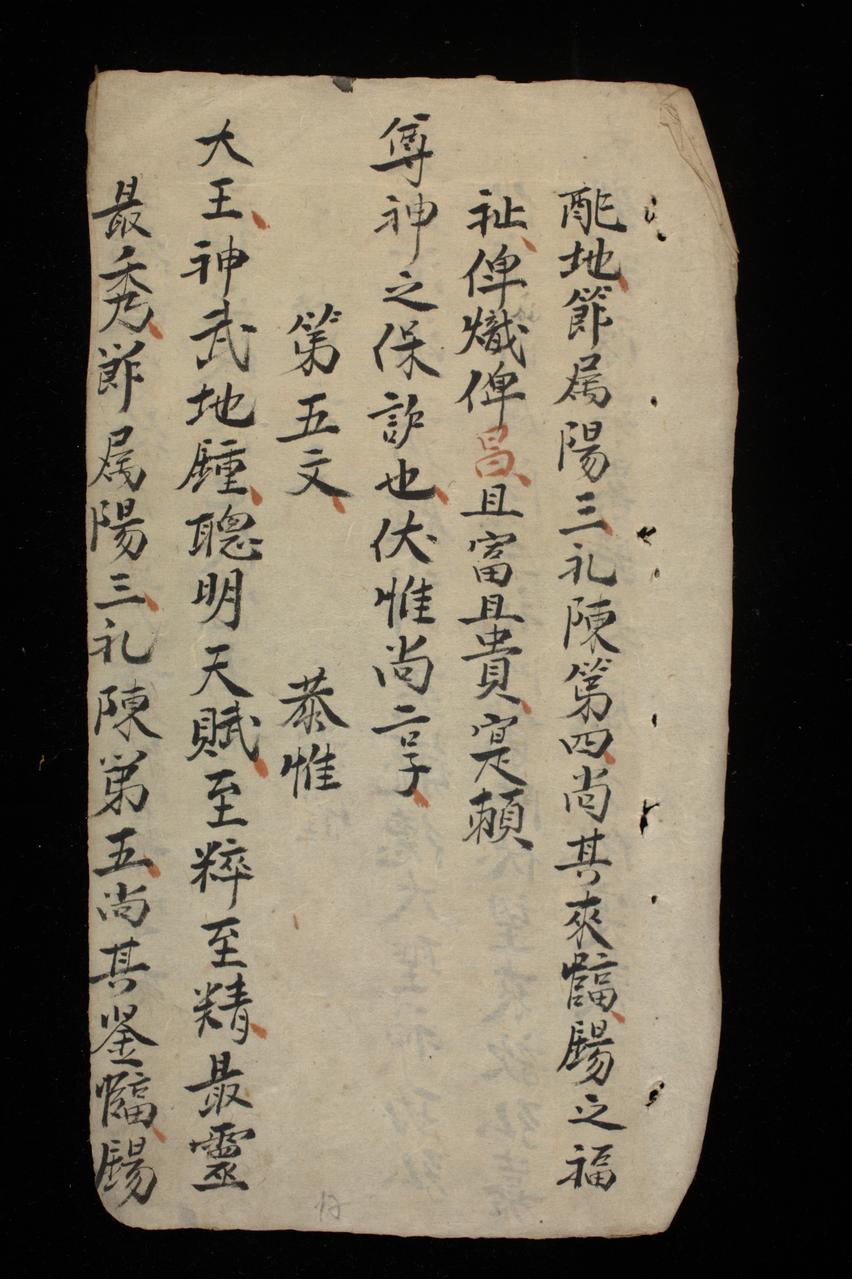 配地節属陽三礼陳第四尚其來臨賜之福
祉俾熾俾昌且富且貴寔頼
尊神之保護也伏惟尚享
第五文　恭惟
大王神武地鍾聰明天賦至粹至精最靈
最秀節属陽三礼陳第五尚其鉴臨賜